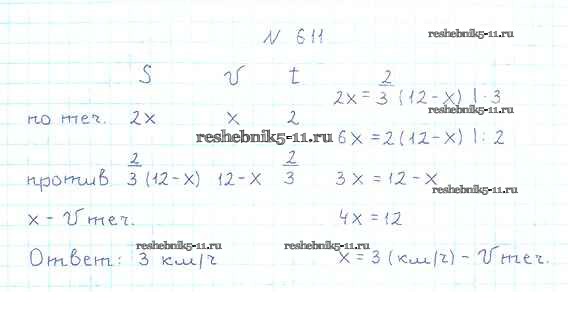 N 611
reshebnik5-11.ru
S V t
2x = 2/3 (12-x) | : 3
по теч. 2x x 2
reshebnik5-11.ru
reshebnik5-11.ru
6x = 2(12-x) | : 2
против 2/3 (12-x) 12-x 2/3
3x = 12-x
reshebnik5-11.ru
x - V теч.
4x = 12
reshebnik5-11.ru
reshebnik5-11.ru
Ответ: 3 км/ч
x = 3 (км/ч) - V теч.